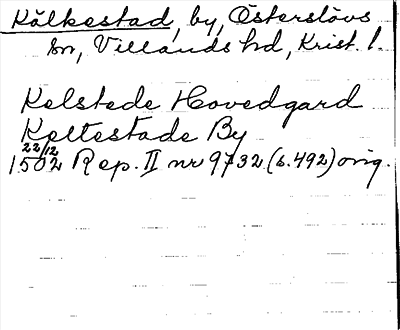 Kälkestad, by, Österslövs
sn, Villands hd, Krist. l.
Kelstede Hovedgard
Keltestade By
22/12
1502 Rep. II nr 9732 (s. 492) orig.